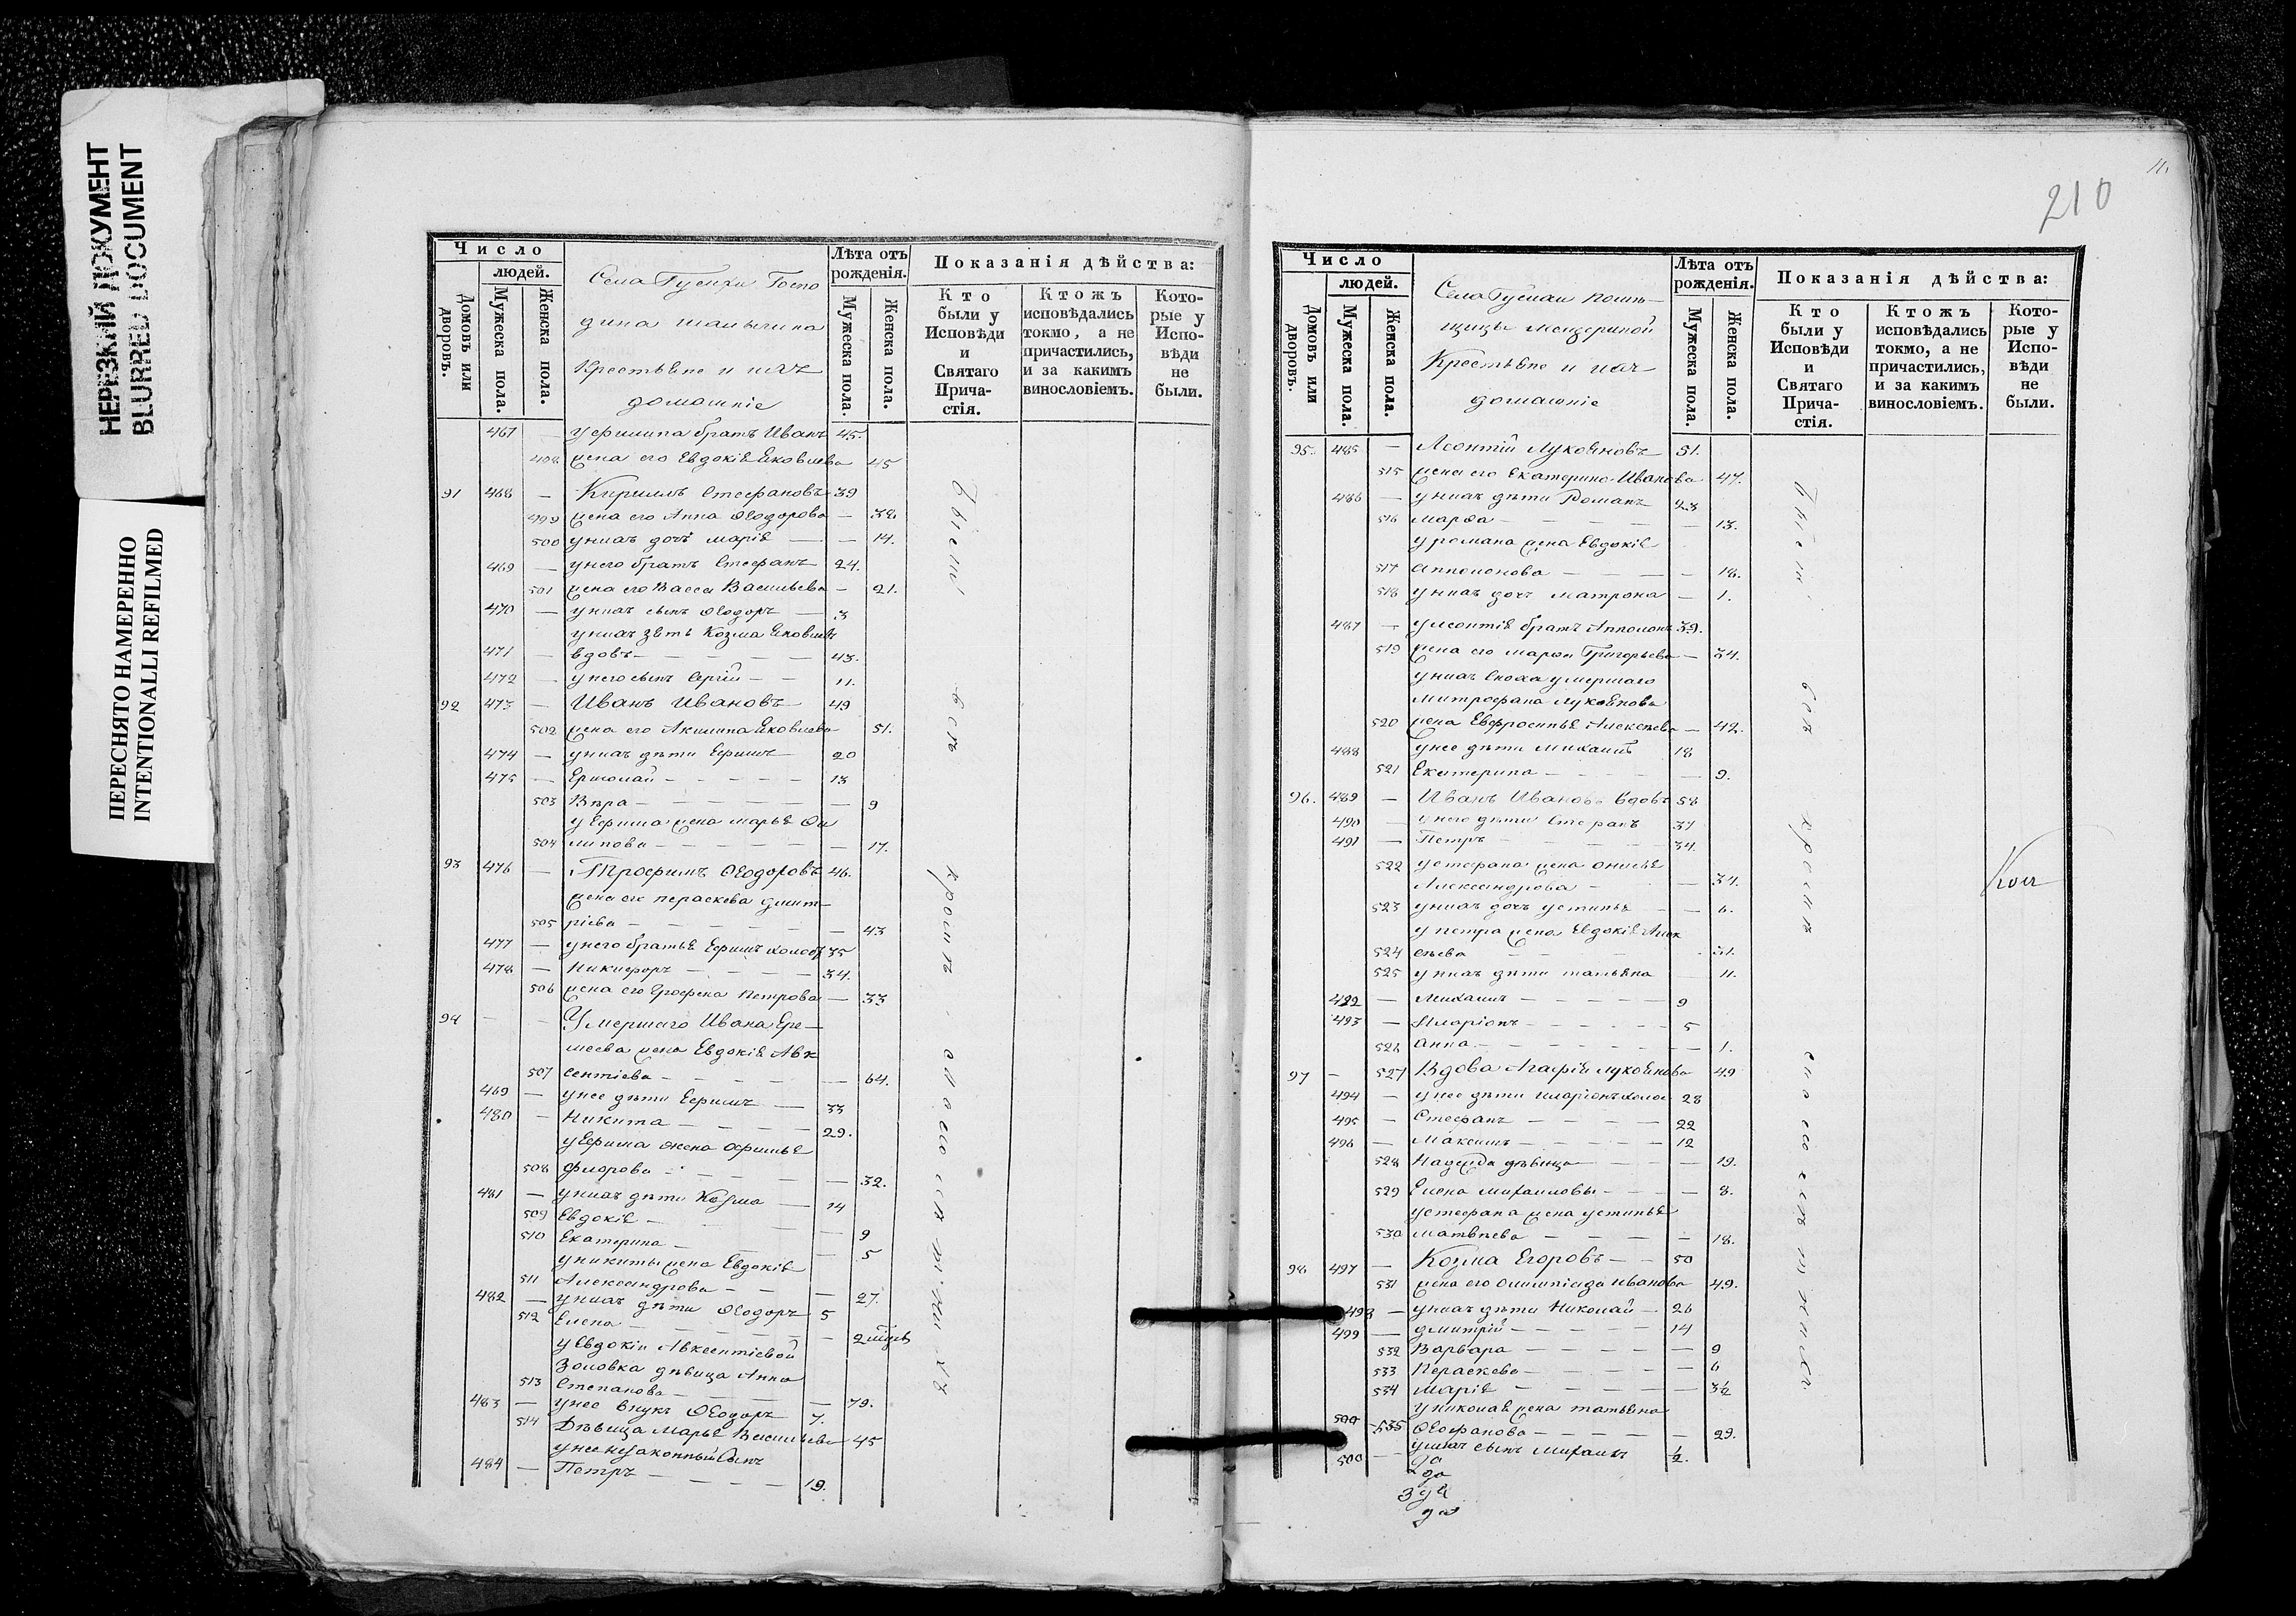 НЕРЕЗКИЙ ДОКУМЕНТ
BLURRED DOCUMENT
ПЕРЕСНЯТО НАМЕРЕННО
INTENTIONALLI REFILMED
Число
людей.
Домовъ или дворовъ.
Мужеска пола.
Женска пола.
Села Гусихи Госпо
дина
Крестьяне и ихъ
домашніе
Лѣта отъ рожденія.
Мужеска пола.
Женска пола.
Показанія дѣйства:
Кто были у Исповѣди и Святаго Прича- стія.
Ктожъ исповѣдались токмо, а не причастились, и за какимъ винословіемъ.
Кото- рые у Испо- вѣди не были.
467 — у Филипа братъ Иванъ 45.
498 жена его Евдокія Яковлева 45
91 468 — Кириллъ Стефановъ 39
499 жена его Анна Ѳеодорова — 38
500 у нихъ дочь Марія — — 14.
469 — у него братъ Стефанъ 24.
501 жена его Васса Васильева — 21.
470 — у нихъ сынъ Ѳеодоръ — 3
у нихъ зять Козма Яковлевъ
471 — вдовъ — 43.
472 — у него сынъ Сергій — 11.
92 473 — Иванъ Ивановъ 49
502 жена его Акилина Яковлева 51.
474 — у нихъ дѣти Ефимъ 20
475 — Ермолай — 13
503 Вѣра — — 9
у Ефима жена Марья Фи
504 липова — — 17.
93 476 — Трофимъ Ѳеодоровъ 46.
жена его Параскева Дмит—
505 ріева — — 43
477 — у него братья Ефимъ холост 35
478 — Никифоръ — 34.
506 жена его Ерофена Петрова — 33
94 — — Умершаго Ивана Ере—
меева жена Евдокія Авк
507 сентіева — — 64.
469 — у нее дѣти Ефимъ — 33
480 — Никита — 29.
у Ефима жена Офимья
508 Фирова — — 32.
481 — у нихъ дѣти Козма — 14
509 Евдокія — — 9
510 Екатерина — — 5
у Никиты жена Евдокія
511 Александрова — — 27.
482 — у нихъ дѣти Ѳеодоръ 5
512 Елена — — 2
у Евдокіи Авксентіевой
золовка дѣвица Анна
513 Степанова — — 79.
483 — у нее внукъ Ѳеодоръ 7.
514 Дѣвица Марья Васильева 45
у нее незаконный сынъ
484 — Петръ — 19.
Были
всѣ
кромѣ
210
Число
людей.
Домовъ или дворовъ.
Мужеска пола.
Женска пола.
Села Гусихи помѣ—
щицы Мещериной
Крестьяне и ихъ
домашніе
Лѣта отъ рожденія.
Мужеска пола.
Женска пола.
Показанія дѣйства:
Кто были у Исповѣди и Святаго Прича- стія.
Ктожъ исповѣдались токмо, а не причастились, и за какимъ винословіемъ.
Кото- рые у Испо- вѣди не были.
95. 485 — Леонтій Лукояновъ 51.
515 жена его Екатерина Иванова 47.
486 — у нихъ дѣти Романъ 23
516 Марѳа — — 13.
у Романа жена Евдокія
517 Апполонова — — 18.
518 у нихъ дочь Матрона — 1.
487 — у Леонтія братъ Апполонъ 39.
519 жена его Марѳа Григорьева — 34.
у нихъ сноха умершаго
Митрофана Лукоянова
520 жена Евфросинья Алексѣева — 42.
488 у нее дѣти Михаилъ 18
521 Екатерина — — 9.
96. 489 — Иванъ Ивановъ вдовъ 58
490 — у него дѣти Стефанъ 37
491 — Петръ — 34.
522 у Стефана жена Онисья
Александрова — — 34.
523 у нихъ дочь Устинья — 6.
у Петра жена Евдокія Алек
524 сѣева — 31.
525 у нихъ дѣти Татьяна 11.
492 — Михаилъ — 9
493 — Иларіонъ — 5
526 Анна — — 1.
97 — 527 Вдова Агафія Лукоянова 49
494 — у нее дѣти Иларіонъ холос 28
495 — Стефанъ — 22
496 — Максимъ — 12
528 Надежда дѣвица — 19.
529 Елена Михаиловы — — 8.
у Стефана жена Устинья
530 Матвѣева — — 18.
98 497 — Козма Егоровъ — 50
531 жена его Олимпіада Иванова 49.
498 — у нихъ дѣти Николай — 26
499 — Дмитрій — 14
532 Варвара — — 9
533 Параскева — — 6
534 Марія — — 3½
у Николая жена Татьяна
500 535 Ѳеофанова — — 29.
500 — у нихъ сынъ Михаилъ ½.
Были
всѣ
кромѣ